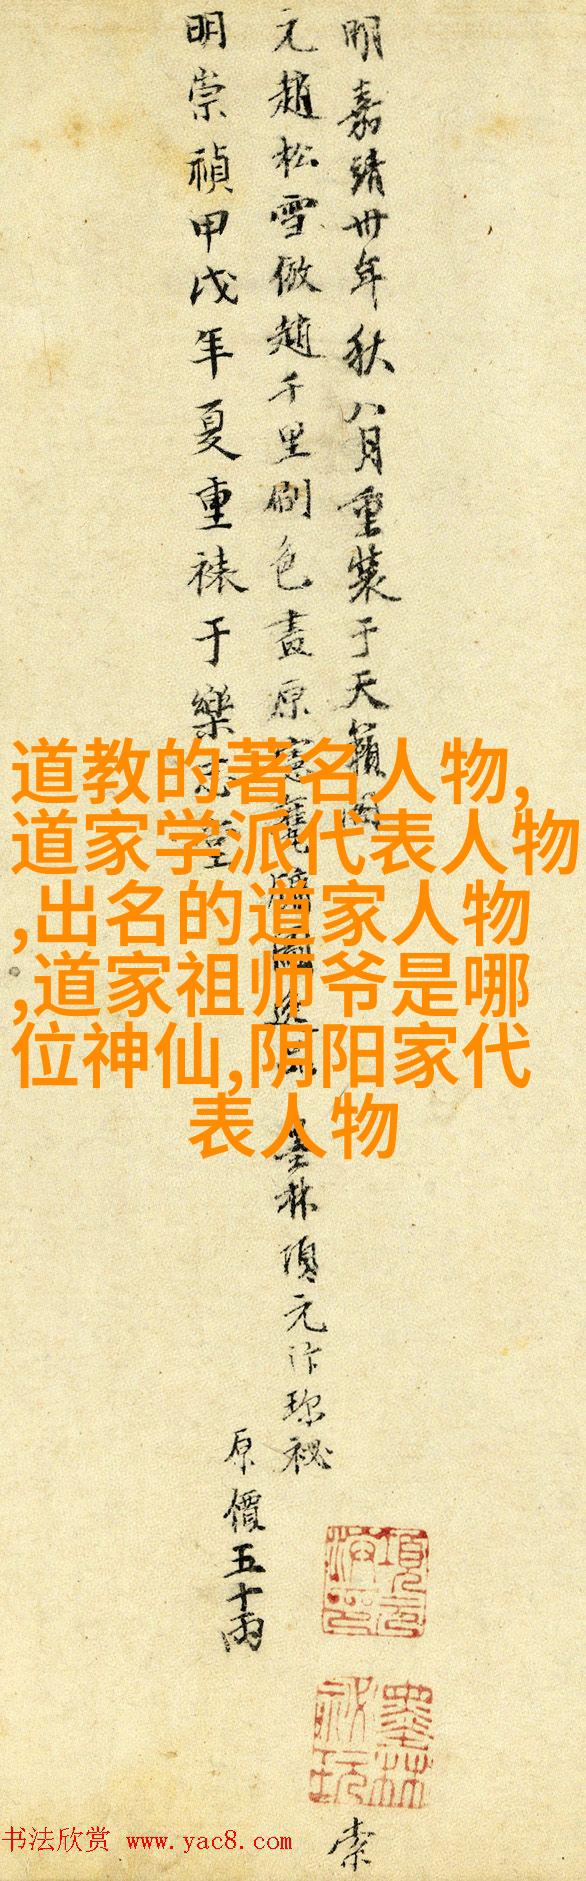 明嘉靖卅年秋八月重装于天籟閣
元趙松雪倣趙千里刷色畫原憲甕牖圖
墨林項元汴珍祕
明崇禎甲戌年夏重裱于樂志堂
原價五十兩
索
道教的著名人物,
道家学派代表人物
,出名的道家人物
,道家祖师爷是哪
位神仙,阴阳家代
表人物
书法欣赏 www.yac8.com